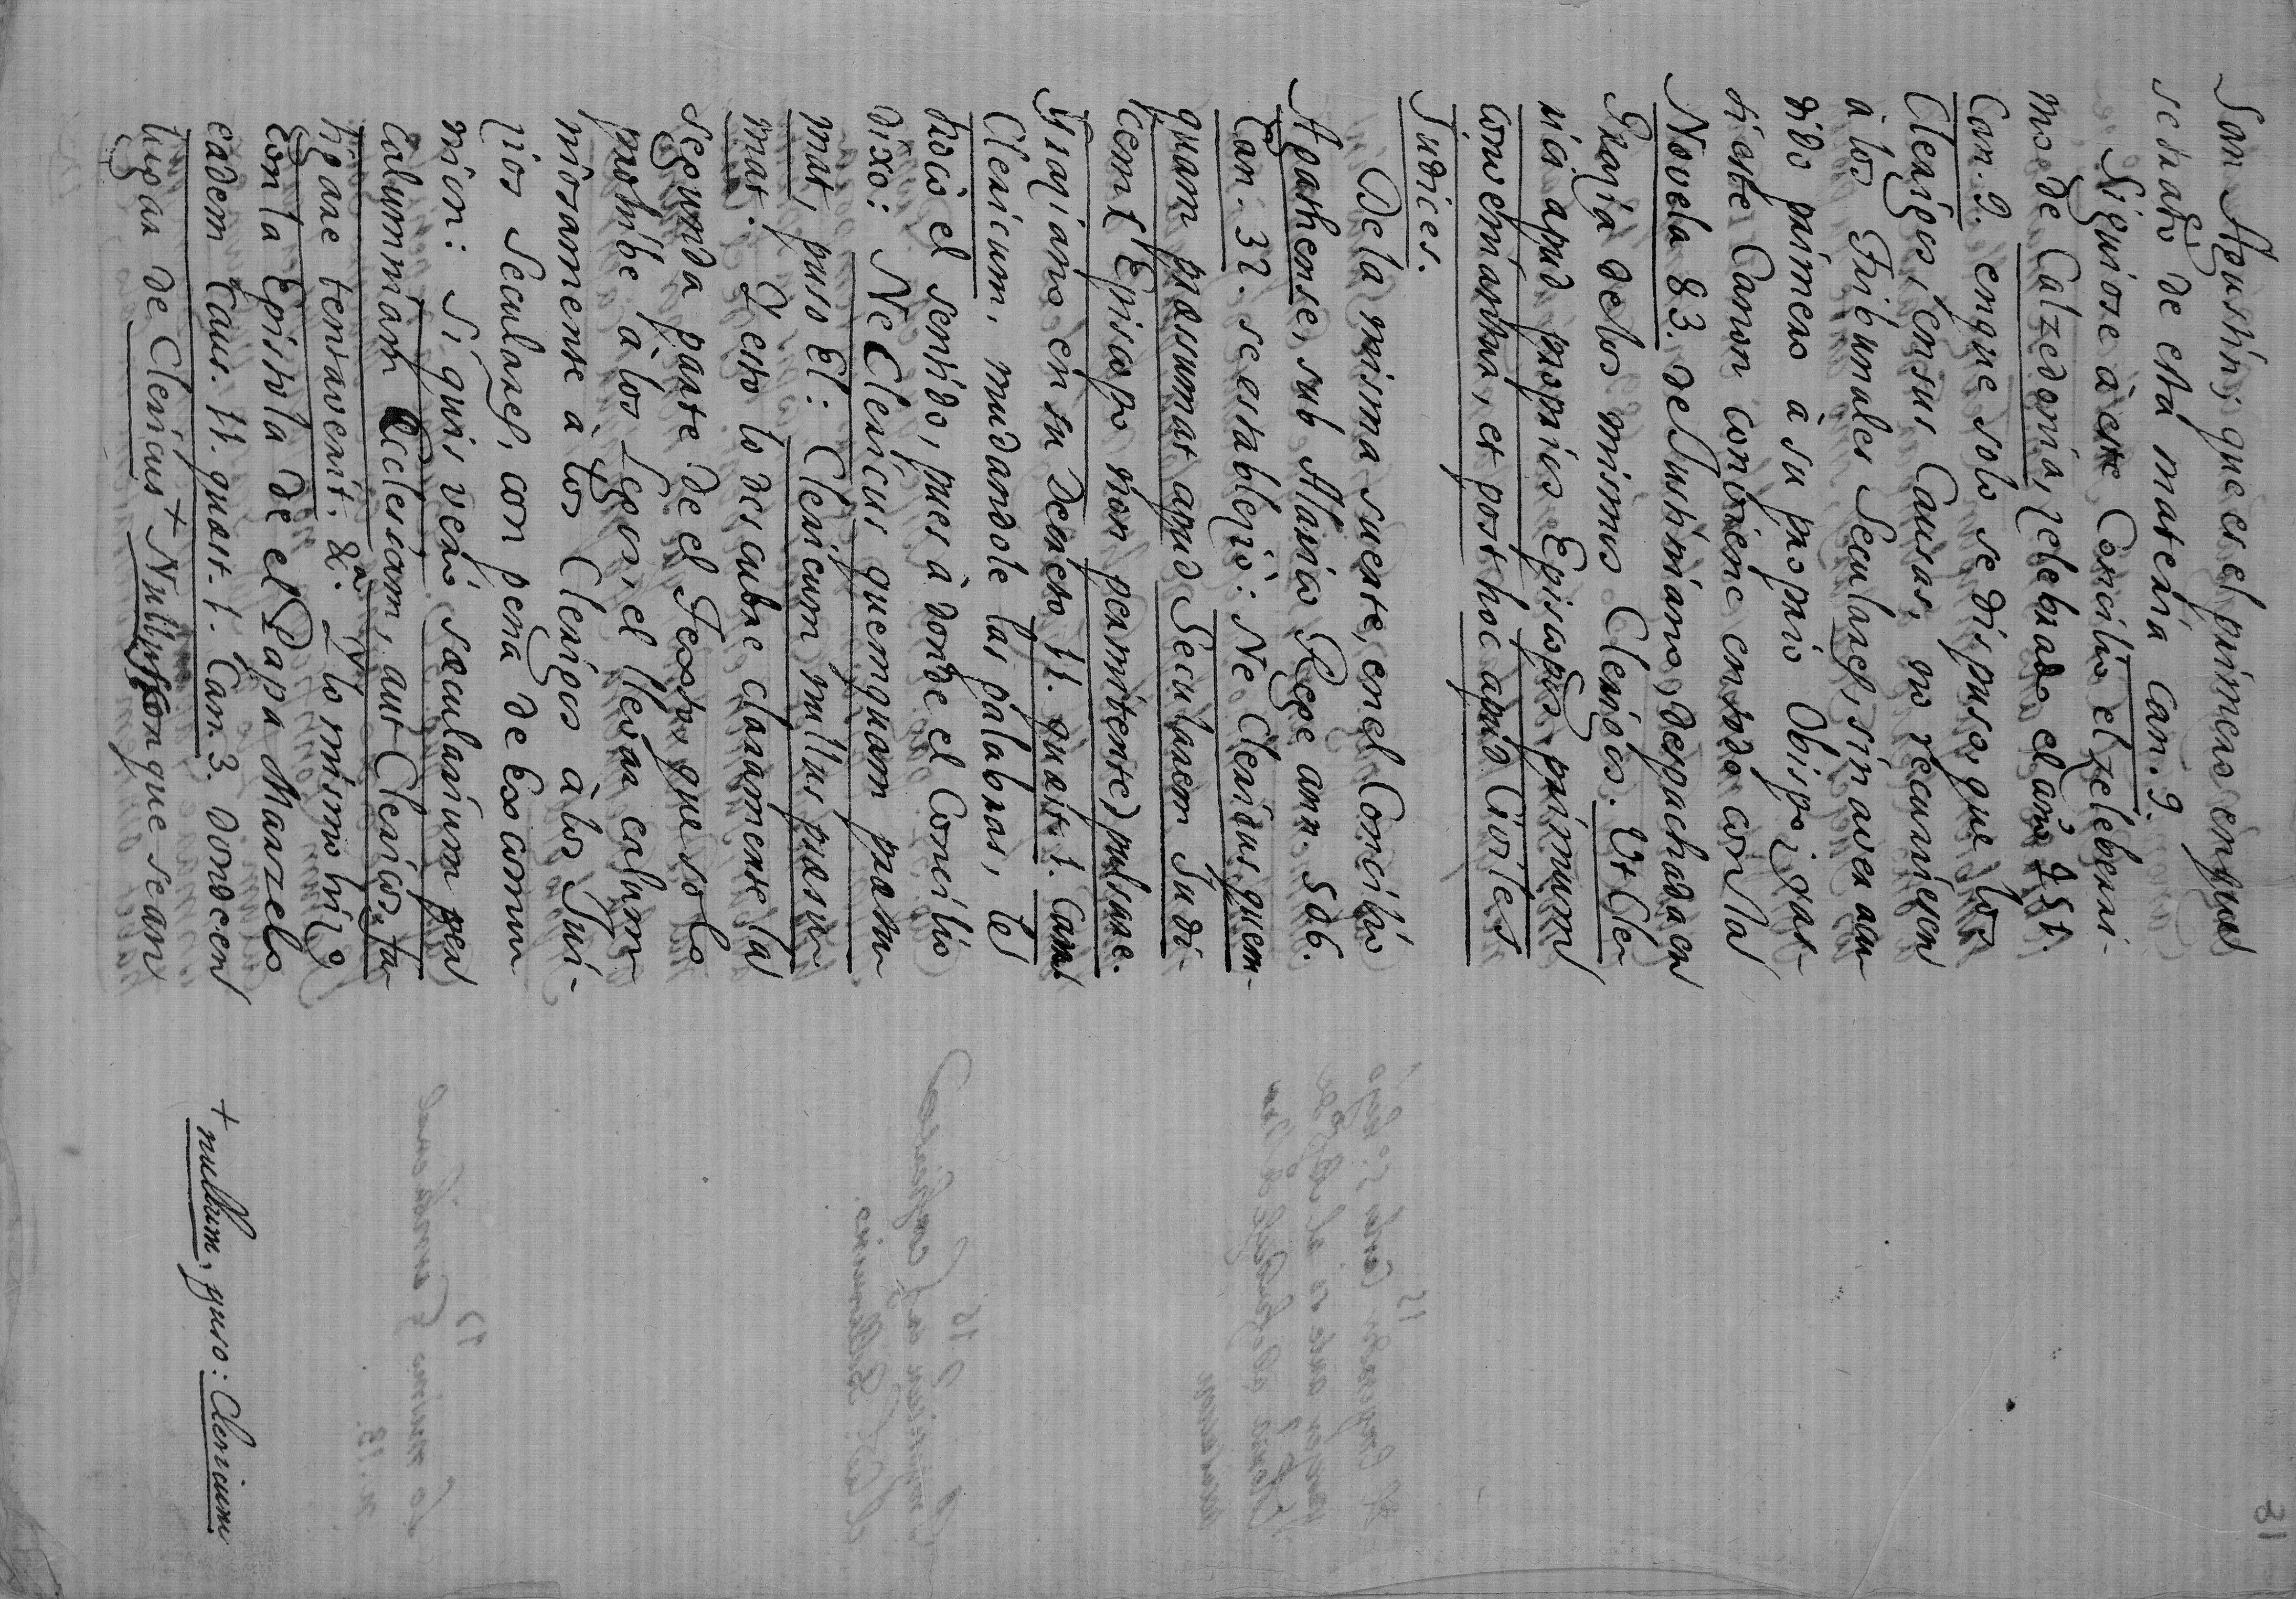 31
San Agustin, que es el primero en que
se trató de esta materia can. 9.
Siguiose à este Concilio el zeleberri-
mo de Calzedonia, zelebrado el año 451.
Can. 9. en que solo se dispuso, que los
Clerigos, en sus Causas, no recurriesen
à los Tribunales Seculares, sin aver acu
dido primero à su proprio Obispo; gar-
diente Canon conviene en todo con la
Novela 83. de Justiniano, despachada en
Grazia de los mismos Clerigos. Ut Cle
rici apud proprios Episcopos primum
conveniantur, et post hoc apud Civiles
Judices.
De la misma suerte, en el Concilio
Agathense, sub Alarico Rege ann. 506.
Can. 32. se establezió: Ne Clericus quem-
quam præsumat apud Secularem Judi-
cem (Episcopo non permitente) pulsare.
Y Graziano en su Decreto 11. quæst. 1. Can.
Clericum, mudandole las palabras, le
bició el sentido, pues à donde el Concilio
dixo: Ne Clericus quemquam præsu
mat, puso El: Clericum nullus præsu-
mat. Y esto lo descubre claramente la
segunda parte de el Texto, que solo
prohibe à los Legos, el llevar calum-
niosamente à los Clerigos à los Jui-
zios Seculares, con pena de Excomun
nion: Si quis verò sæcularium per
calumniam Ecclesiam, aut Clericos, fa-
tigare tentaverit. &ª. Y lo mismo hizo
con la Epistola de el Papa Marzelo
eadem Caus. 11. quæst. 1. Can. 3. donde en
lugar de Clericus + Nullus con que sean
+ nullum, puso: Clericum